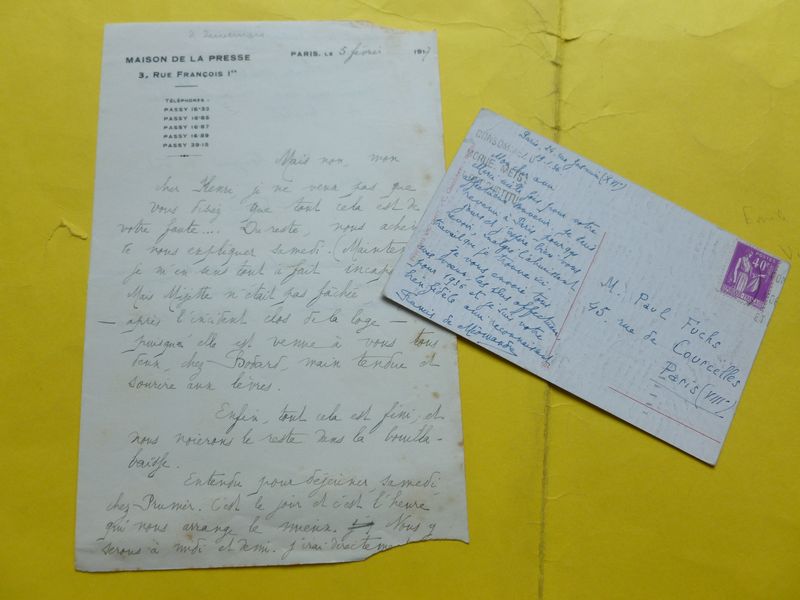 MAISON DE LA PRESSE
3, RUE FRANÇOIS Ier
PARIS, LE 5 février 1917
TÉLÉPHONES :
PASSY 16-33
PASSY 16-85
PASSY 16-87
PASSY 16-89
PASSY 39-15
Mais non, mon
cher Henri, je ne veux pas que
vous disiez que tout cela est de
votre faute.... Du reste, nous
nous expliquer samedi. (Mainten
je m'en sens tout à fait incap
Mais Mijotte n'était pas fâchée
— après l'incident clos de la loge —
puisqu'elle est venue à vous tous
deux, chez Bodard, main tendue et
sourire aux lèvres.
Enfin, tout cela est fini, et
nous noierons le reste dans la bouilla-
baisse.
Entendu pour déjeuner samedi
chez Prunier. C'est le jour et c'est l'heure
qui nous arrange le mieux. Nous y
serons à midi et demi. J'irai directement
Paris, 24 rue (XVIe)
Mon cher ami
Merci cette fois pour votre
affectueux souvenir. Je suis
revenu à Paris, pour
jours et j'espère bien vous
revoir, malgré l'
travail que je trouve ici.
Je vous envoie tous
mes vœux les plus affectueux
pour 1936 et suis votre
bien fidèle ami reconnaissant
Francis de Miomandre
CONSOMMEZ
MORUE
M. Paul Fuchs
45 rue de
Courcelles
Paris (VIIIe)
POSTES
40c